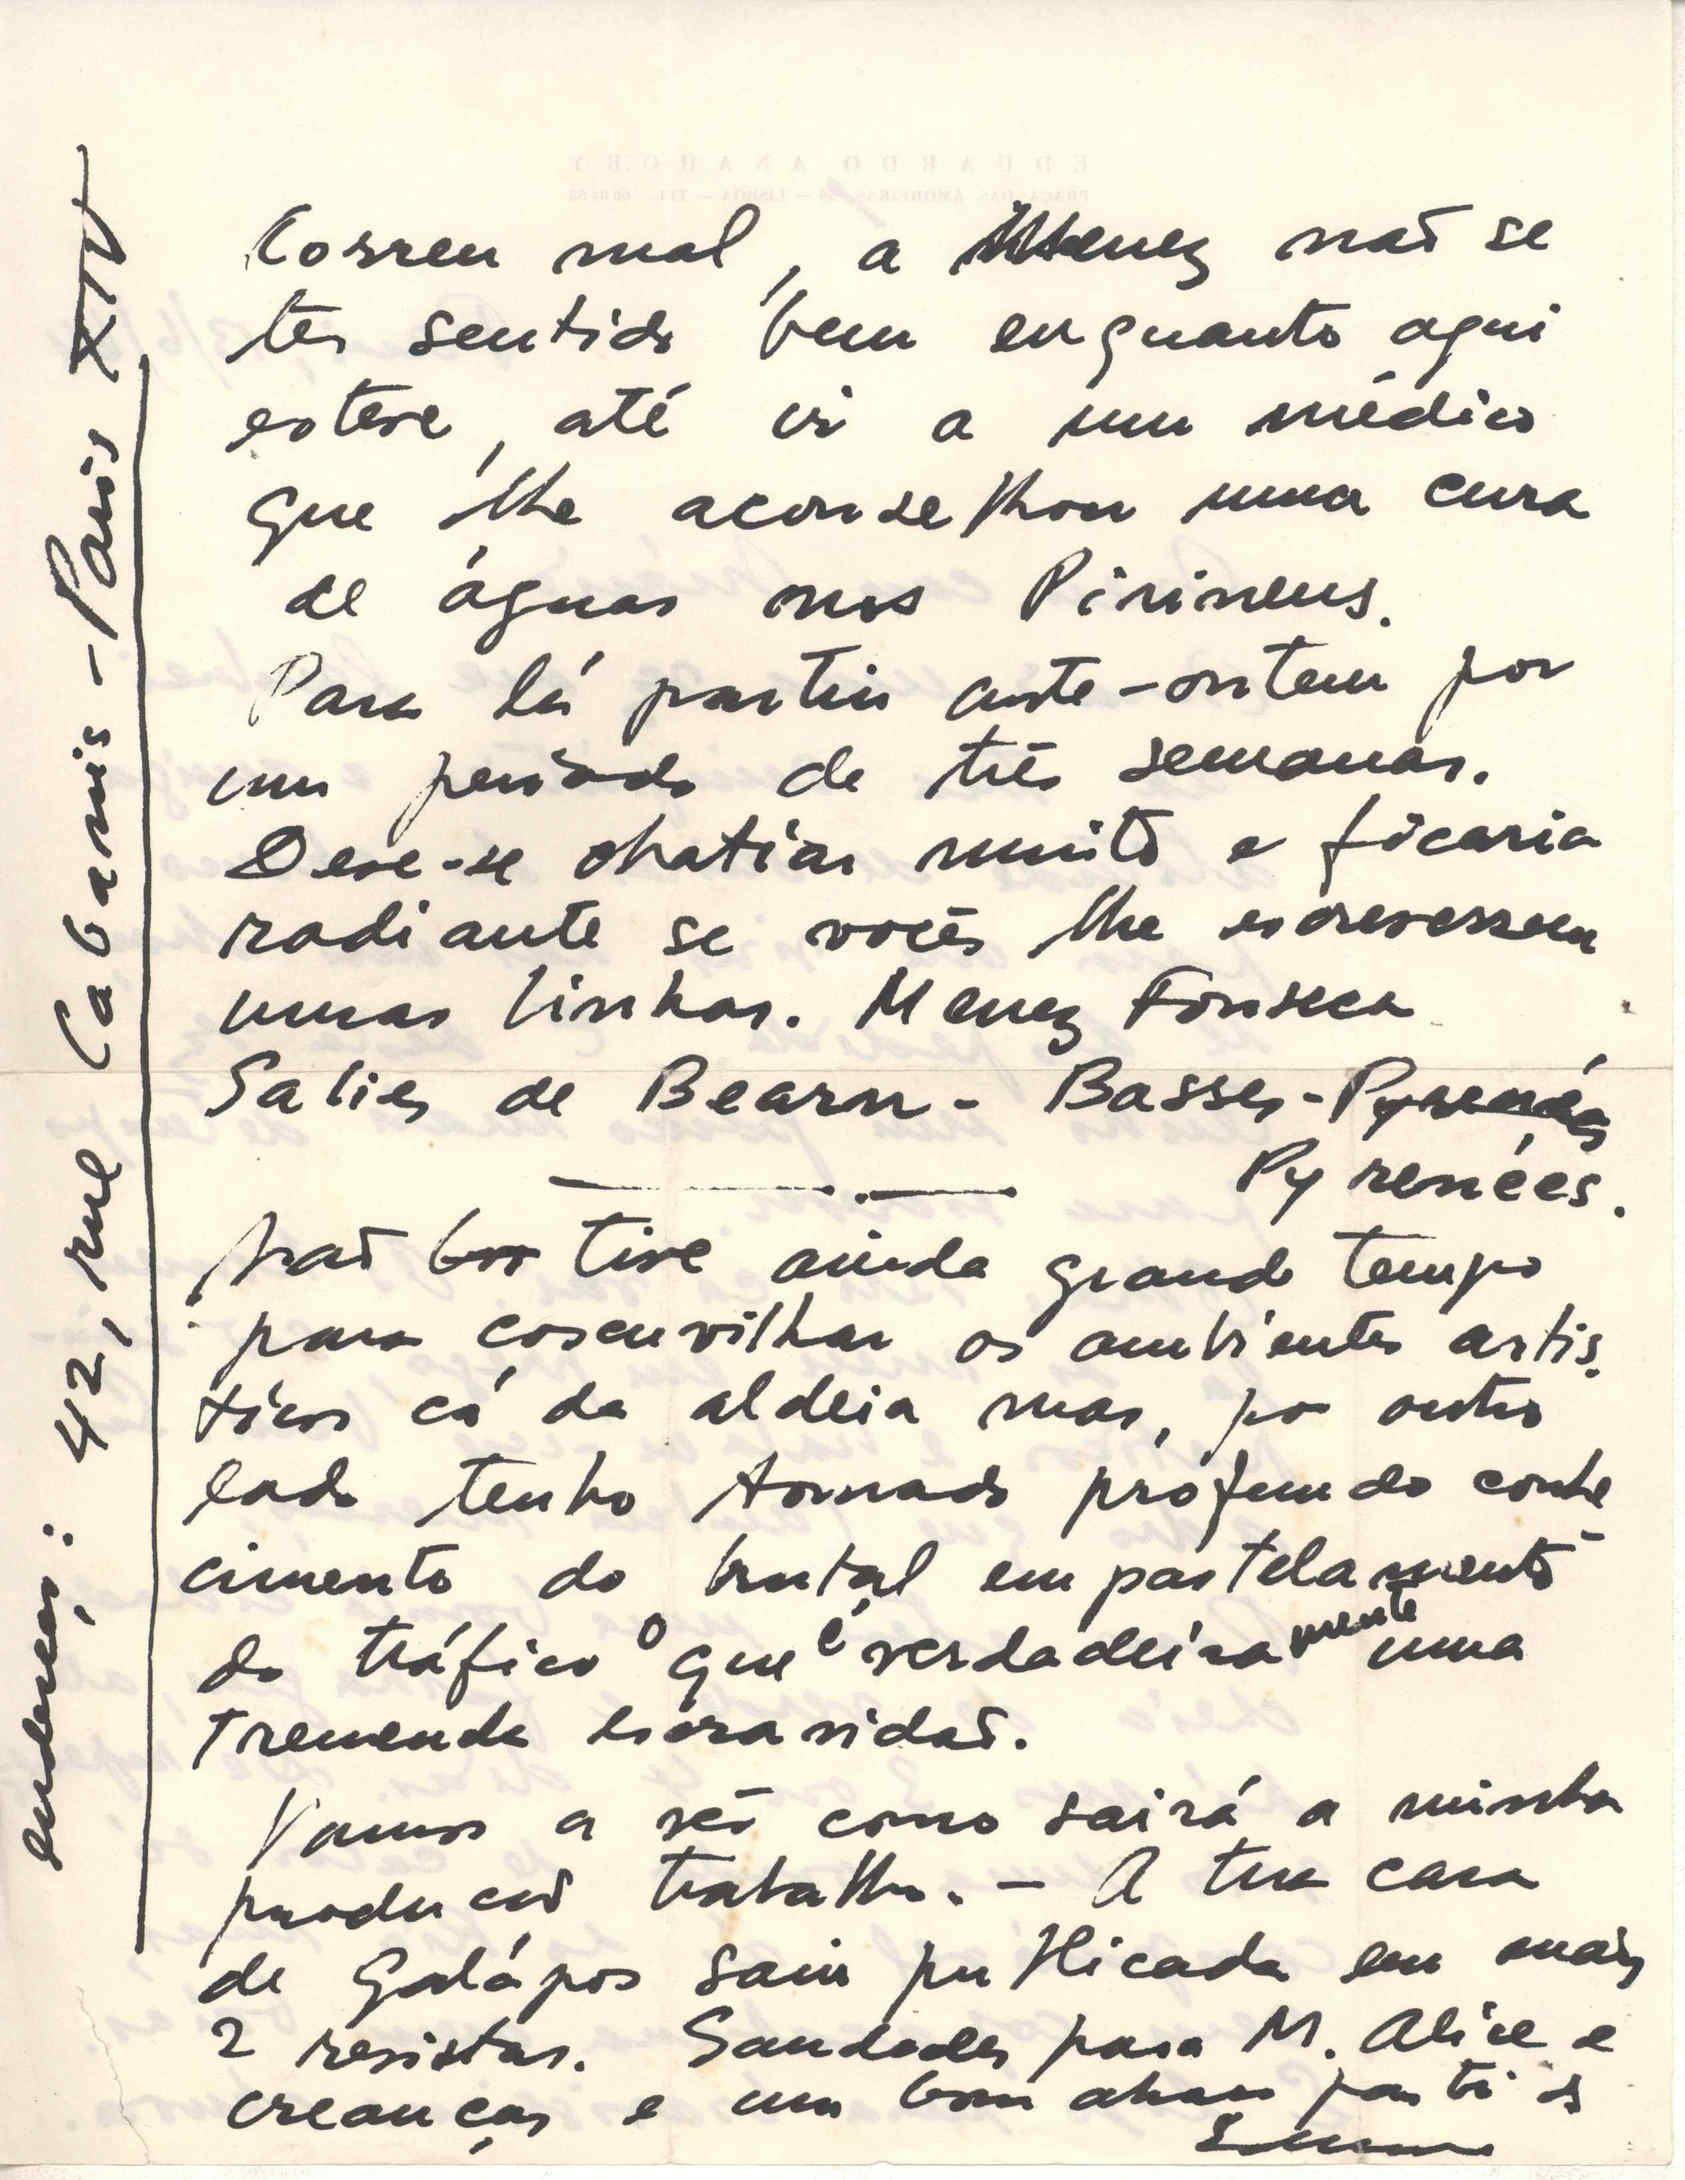 Correu mal, a Menez não se
ter sentido bem enquanto aqui
esteve, até ir a um médico
que lhe aconselhou uma cura
de águas nos Pirineus.
Para lá partiu ante-ontem por
um periodo de três semanas.
Deve-se chatiar muito e ficaria
radiante se vocês lhe escrevessem
umas linhas. Menez Fonseca
Salies de Bearn - Basses-Pyrenées
Pyrenées.
Não tive ainda grande tempo
para coscuvilhar os ambientes artis-
ticos cá da aldeia mas, por outro
lado tenho tomado profundo conhe
cimento do brutal empastelamento
do tráfico o que é verdadeiramente uma
tremenda escravidão.
Vamos a vêr como sairá a minha
produção trabalho. - A tua casa
de Galápos saiu publicada em mais
2 revistas. Saudades para M. Alice e
creanças e um bom abraço para ti do
endereço: 42, rue Cabanis - Paris XIV
EDUARDO ANAHORY
PRAÇA DAS AMOREIRAS, - LISBOA - TEL.